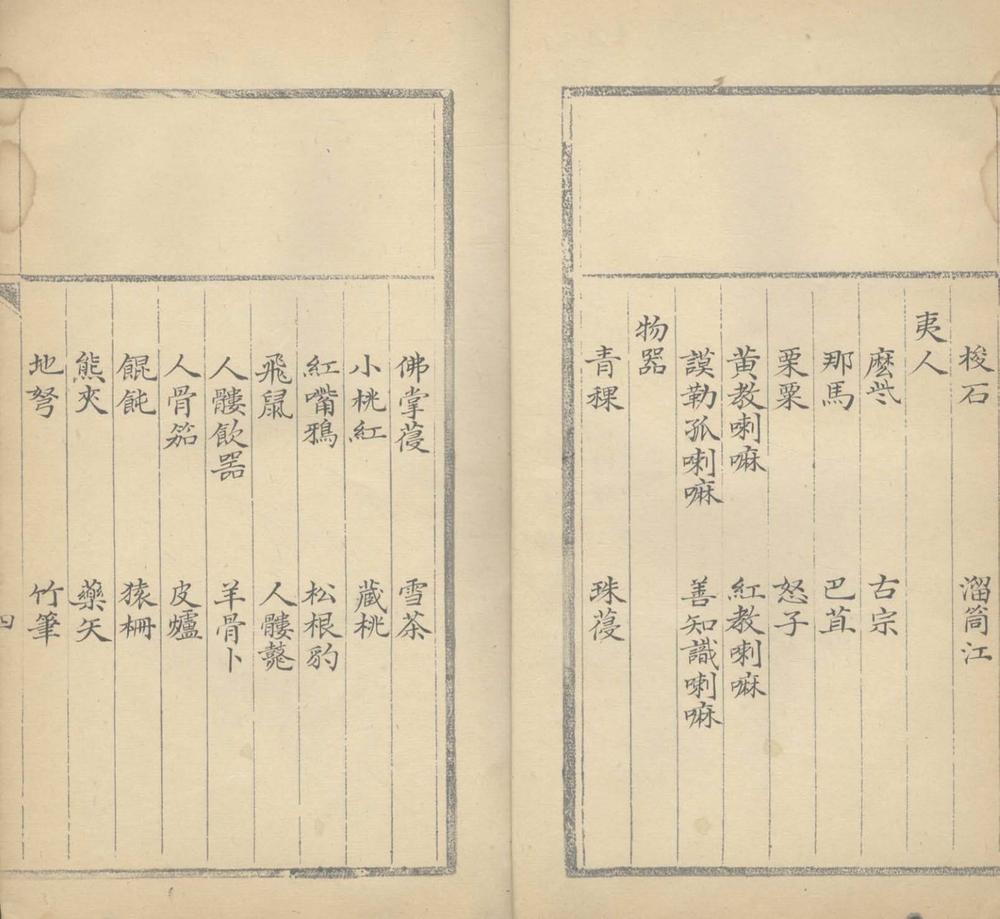 梭石 溜筒江
夷人
麽㱔 古宗
那馬 巴苴
栗粟 怒子
黄教喇嘛 紅教喇嘛
謨勒孤喇嘛 善知識喇嘛
物器
青稞 珠葠
佛掌葠 雪茶
小桃紅 藏桃
紅嘴鴉 松根豹
飛鼠 人髏鼗
人髏飲器 羊骨卜
人骨笳 皮爐
餛飩 猿柵
熊夾 藥矢
地弩 竹筆
四